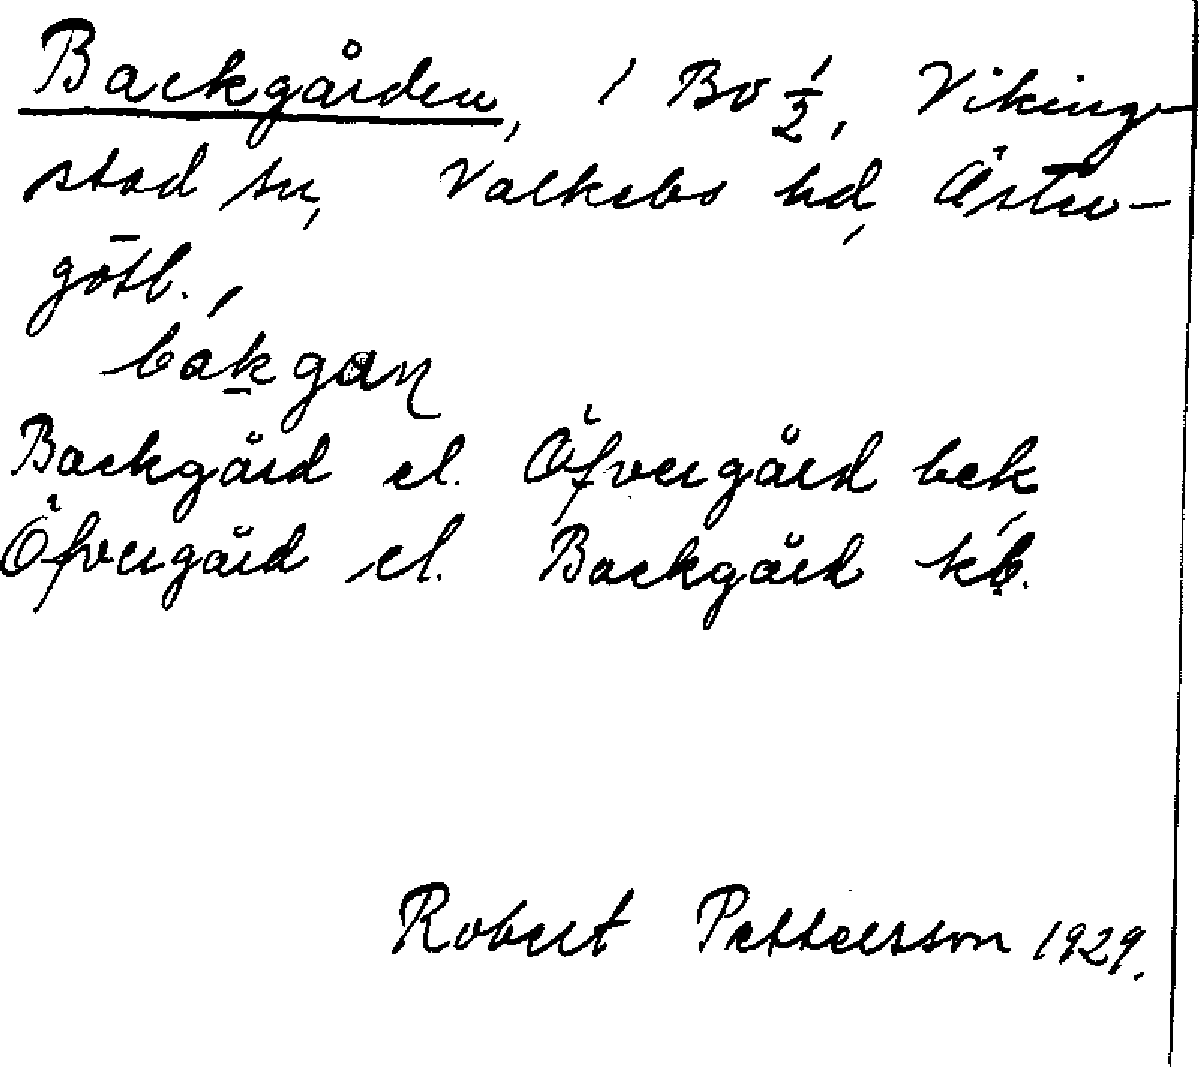 Backgården, i Bo 1/2, Viking-
stad sn, Valkebo hd, Öster-
götl.,
bákgan
Backgård el. Öfvergård bek
Öfvergård el. Backgård kb.
Robert Pettersson 1929.